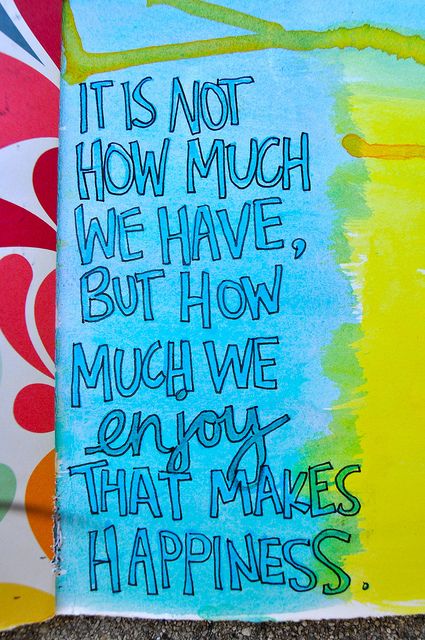 IT IS NOT
HOW MUCH
WE HAVE,
BUT HOW
MUCH WE
enjoy
THAT MAKES
HAPPINESS.